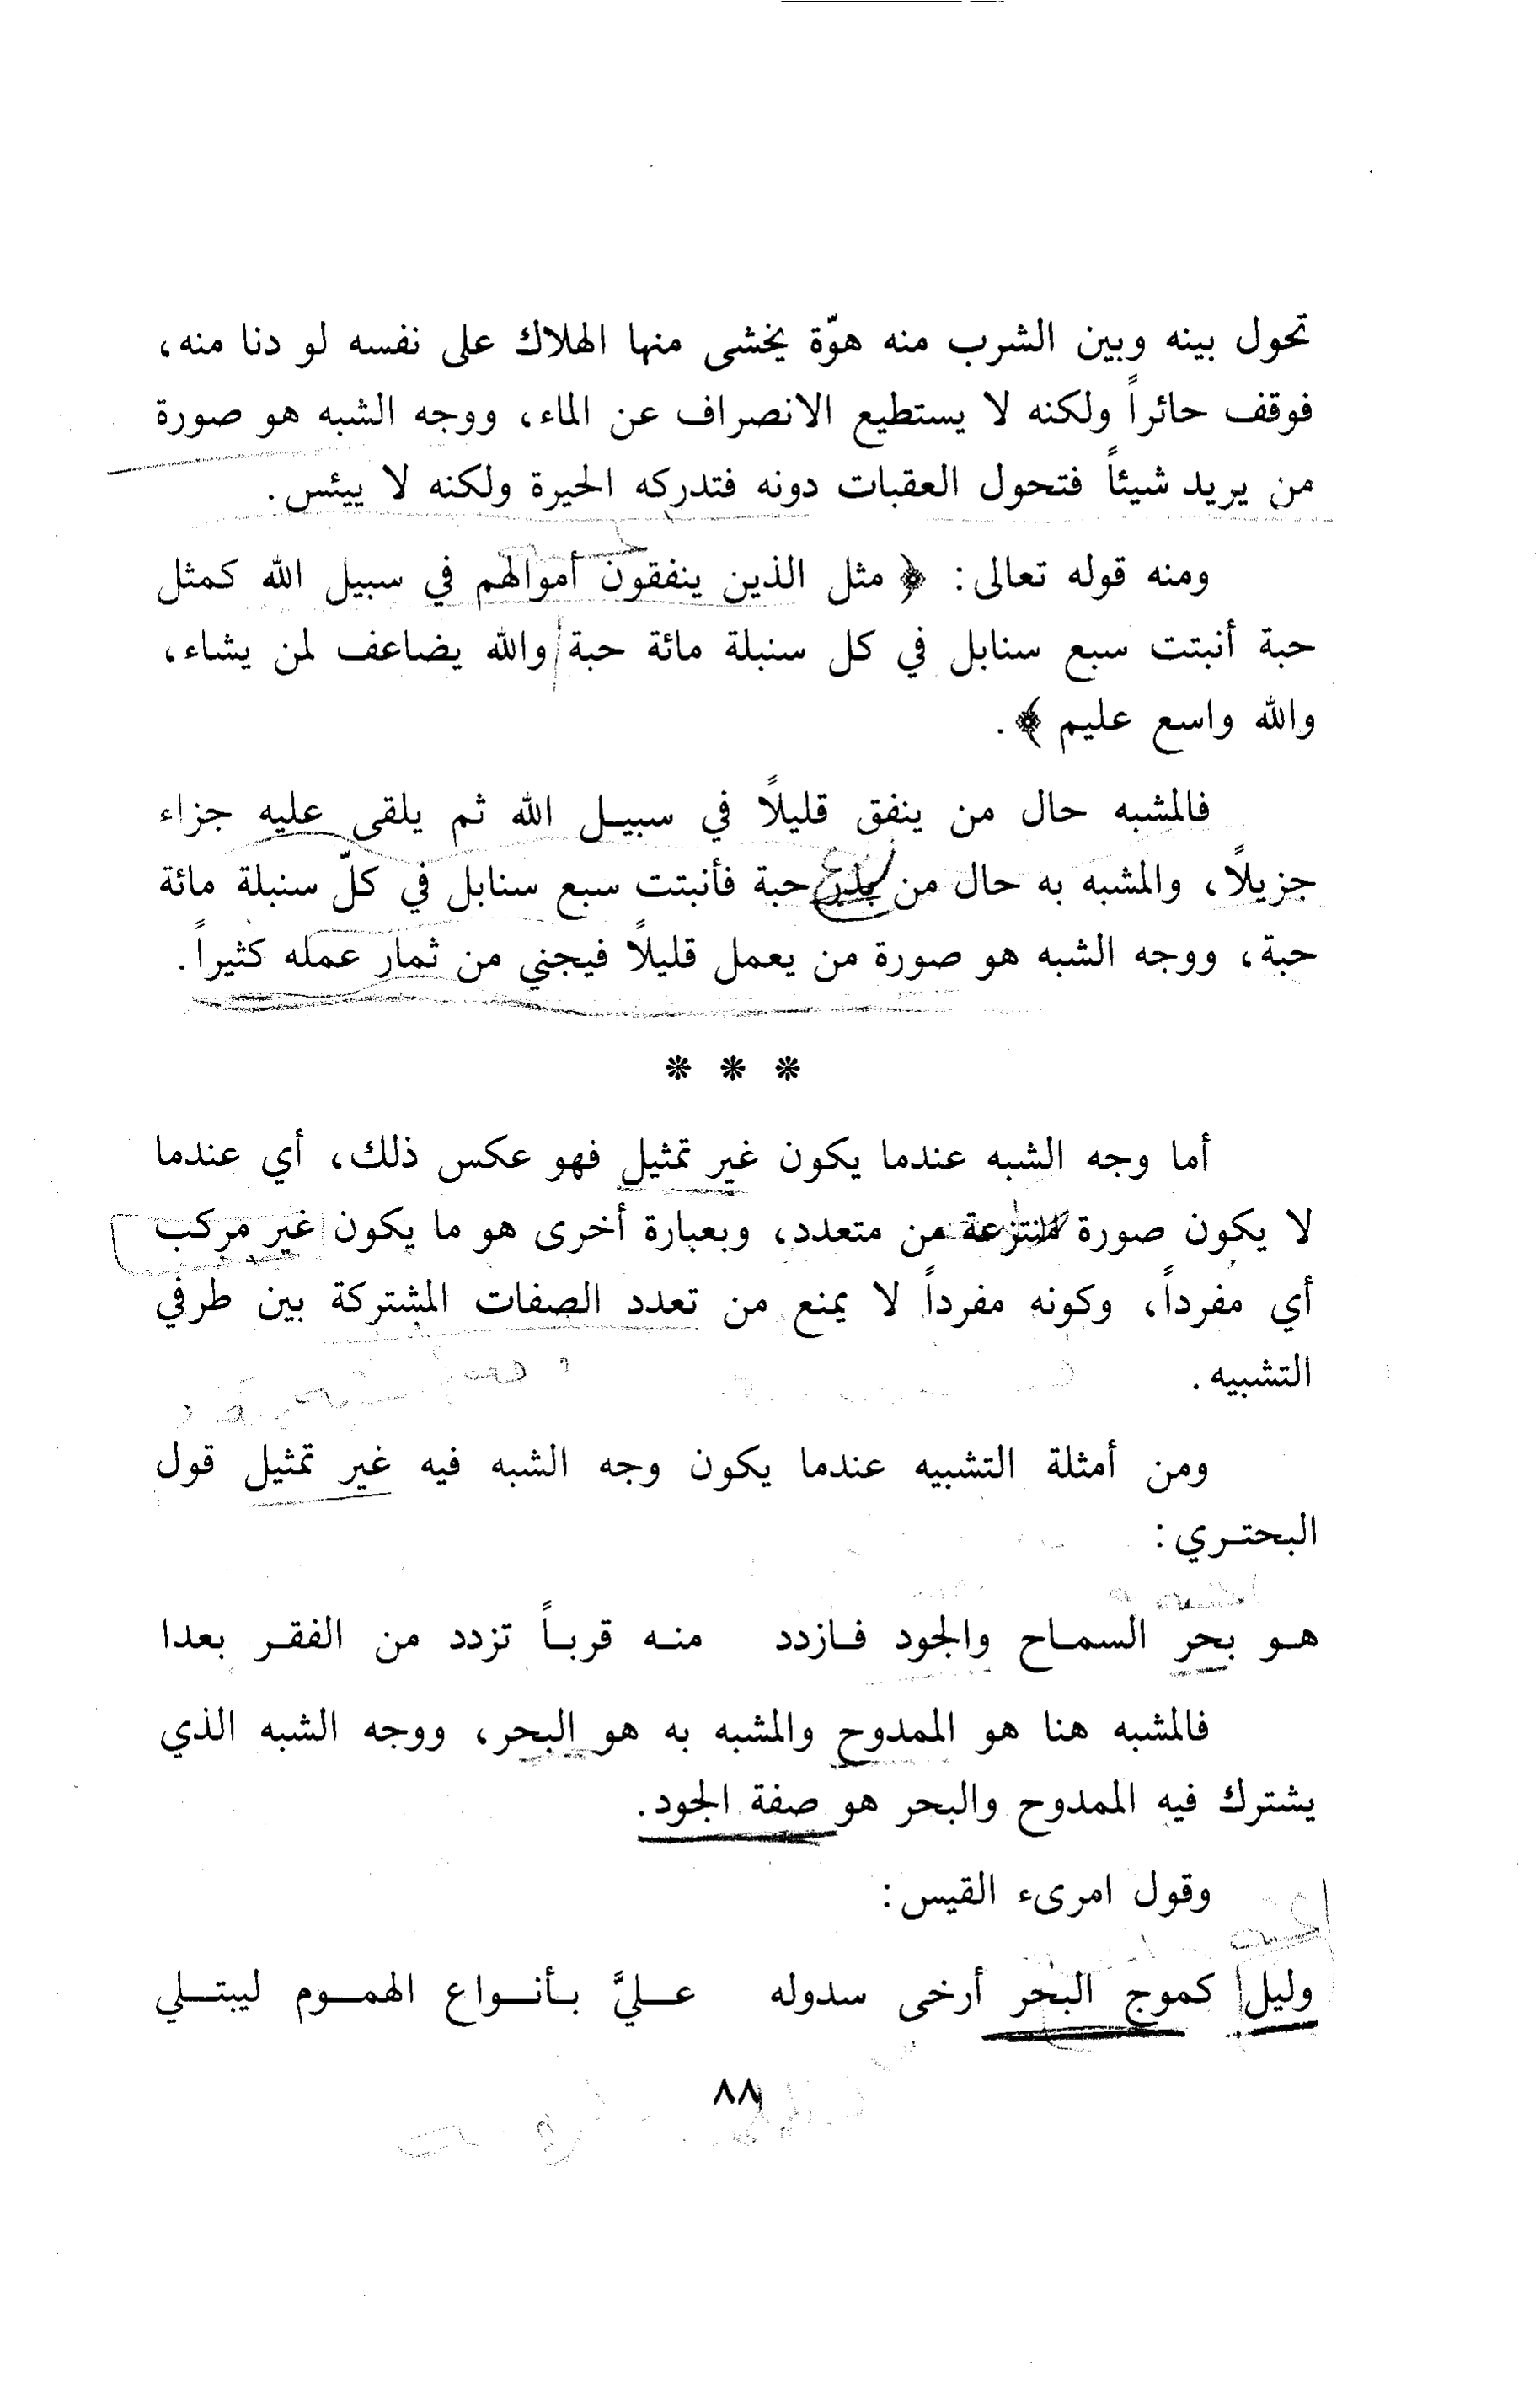 تحول بينه وبين الشرب منه هوّة يخشى منها الهلاك على نفسه لو دنا منه،
فوقف حائراً ولكنه لا يستطيع الانصراف عن الماء، ووجه الشبه هو صورة
من يريد شيئاً فتحول العقبات دونه فتدركه الحيرة ولكنه لا ييئس.
ومنه قوله تعالى: ﴿مثل الذين ينفقون أموالهم في سبيل الله كمثل
حبة أنبتت سبع سنابل في كل سنبلة مائة حبة والله يضاعف لمن يشاء،
والله واسع عليم﴾.
فالمشبه حال من ينفق قليلًا في سبيـل الله ثم يلقى عليه جزاء
جزيلًا، والمشبه به حال من بذر حبة فأنبتت سبع سنابل في كلّ سنبلة مائة
حبة، ووجه الشبه هو صورة من يعمل قليلًا فيجني من ثمار عمله كثيراً.
* * *
أما وجه الشبه عندما يكون غير تمثيل فهو عكس ذلك، أي عندما
لا يكون صورة منتزعة من متعدد، وبعبارة أخرى هو ما يكون غير مركب
أي مفرداً، وكونه مفرداً لا يمنع من تعدد الصفات المشتركة بين طرفي
التشبيه.
ومن أمثلة التشبيه عندما يكون وجه الشبه فيه غير تمثيل قول
البحتـري:
هـو بحر السمـاح والجود فـازدد منـه قربـاً تزدد من الفقـر بعدا
فالمشبه هنا هو الممدوح والمشبه به هو البحر، ووجه الشبه الذي
يشترك فيه الممدوح والبحر هو صفة الجود.
وقول امرىء القيس:
وليل كموج البحر أرخى سدوله عـليَّ بـأنـواع الهمـوم ليبتـلي
٨٨